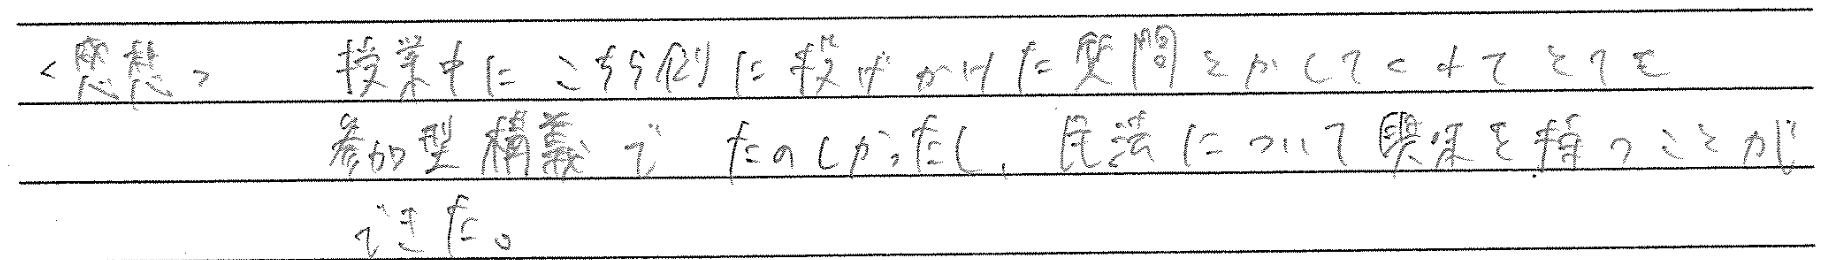 <感想> 授業中にこちら側に投げかけた質問とかしてくれてとても
参加型構義でたのしかったし、民法について興味を持つことが
できた。